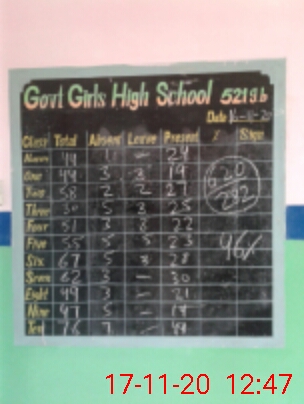 Govt Girls High School 5219b
Date 16-11-20
Class Total Absent Leave Present % Sign
One 44 3 3 19
Two 58 2 2 27
Three 5 3 25
Four 51 3 8 22
Five 55 5 5 23
Six 67 5 3 28
Seven 62 3 - 30
Eight 49 3 - 21
Nine 47 5 -
Ten 76 7 - 44
620
292
96%
17-11-20 12:47